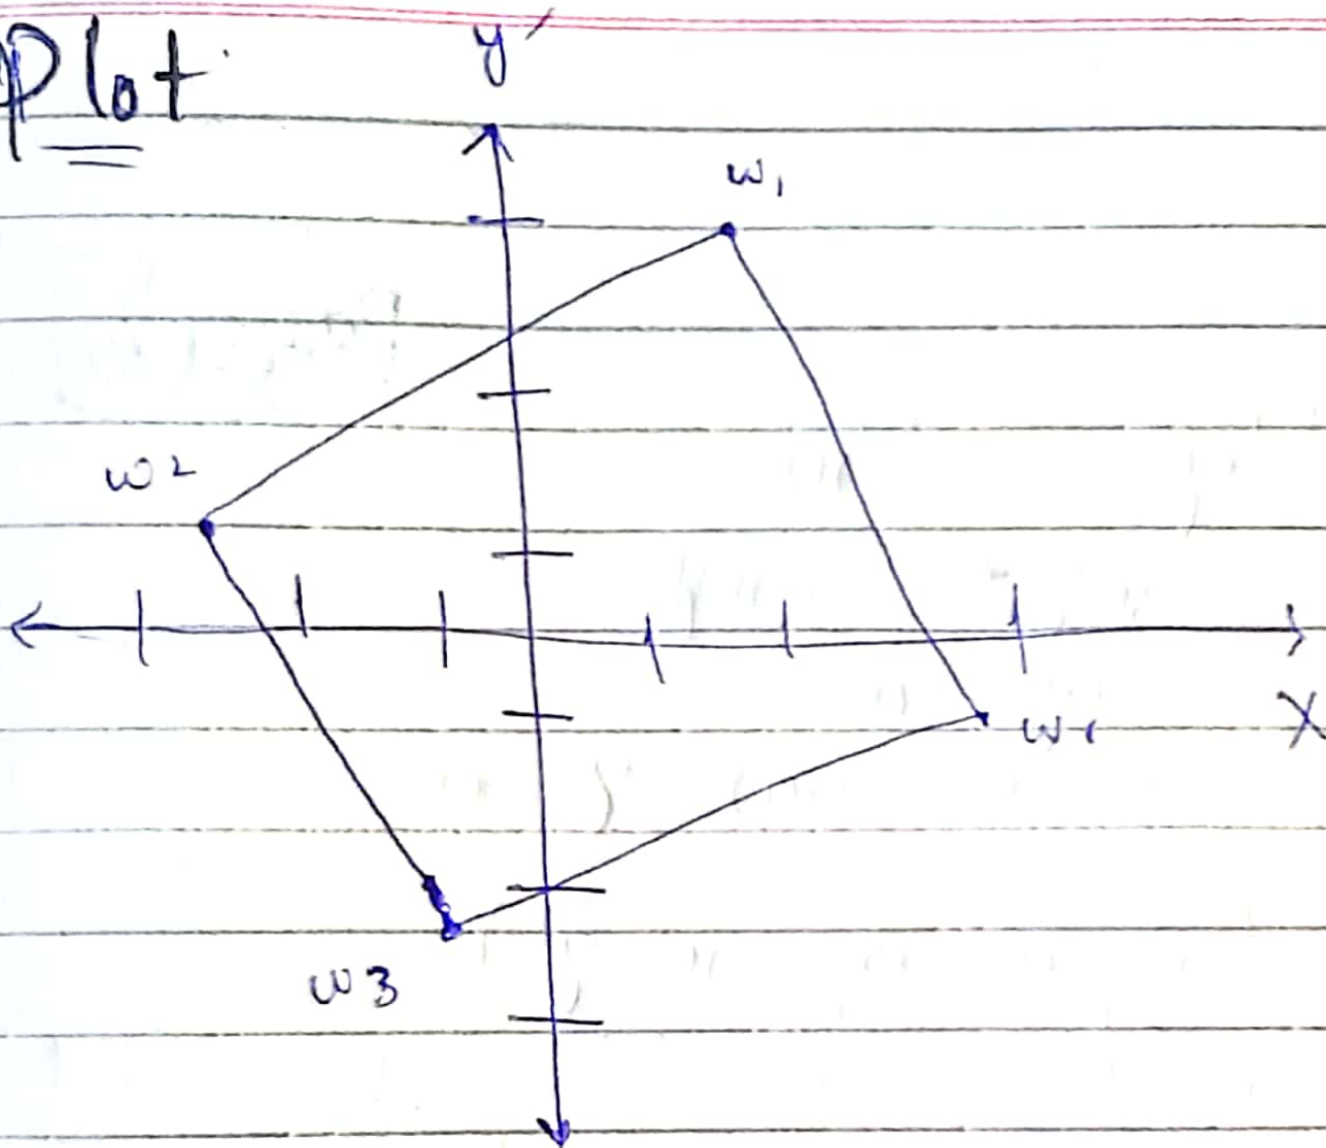 Plot
y
w1
w2
X
w3